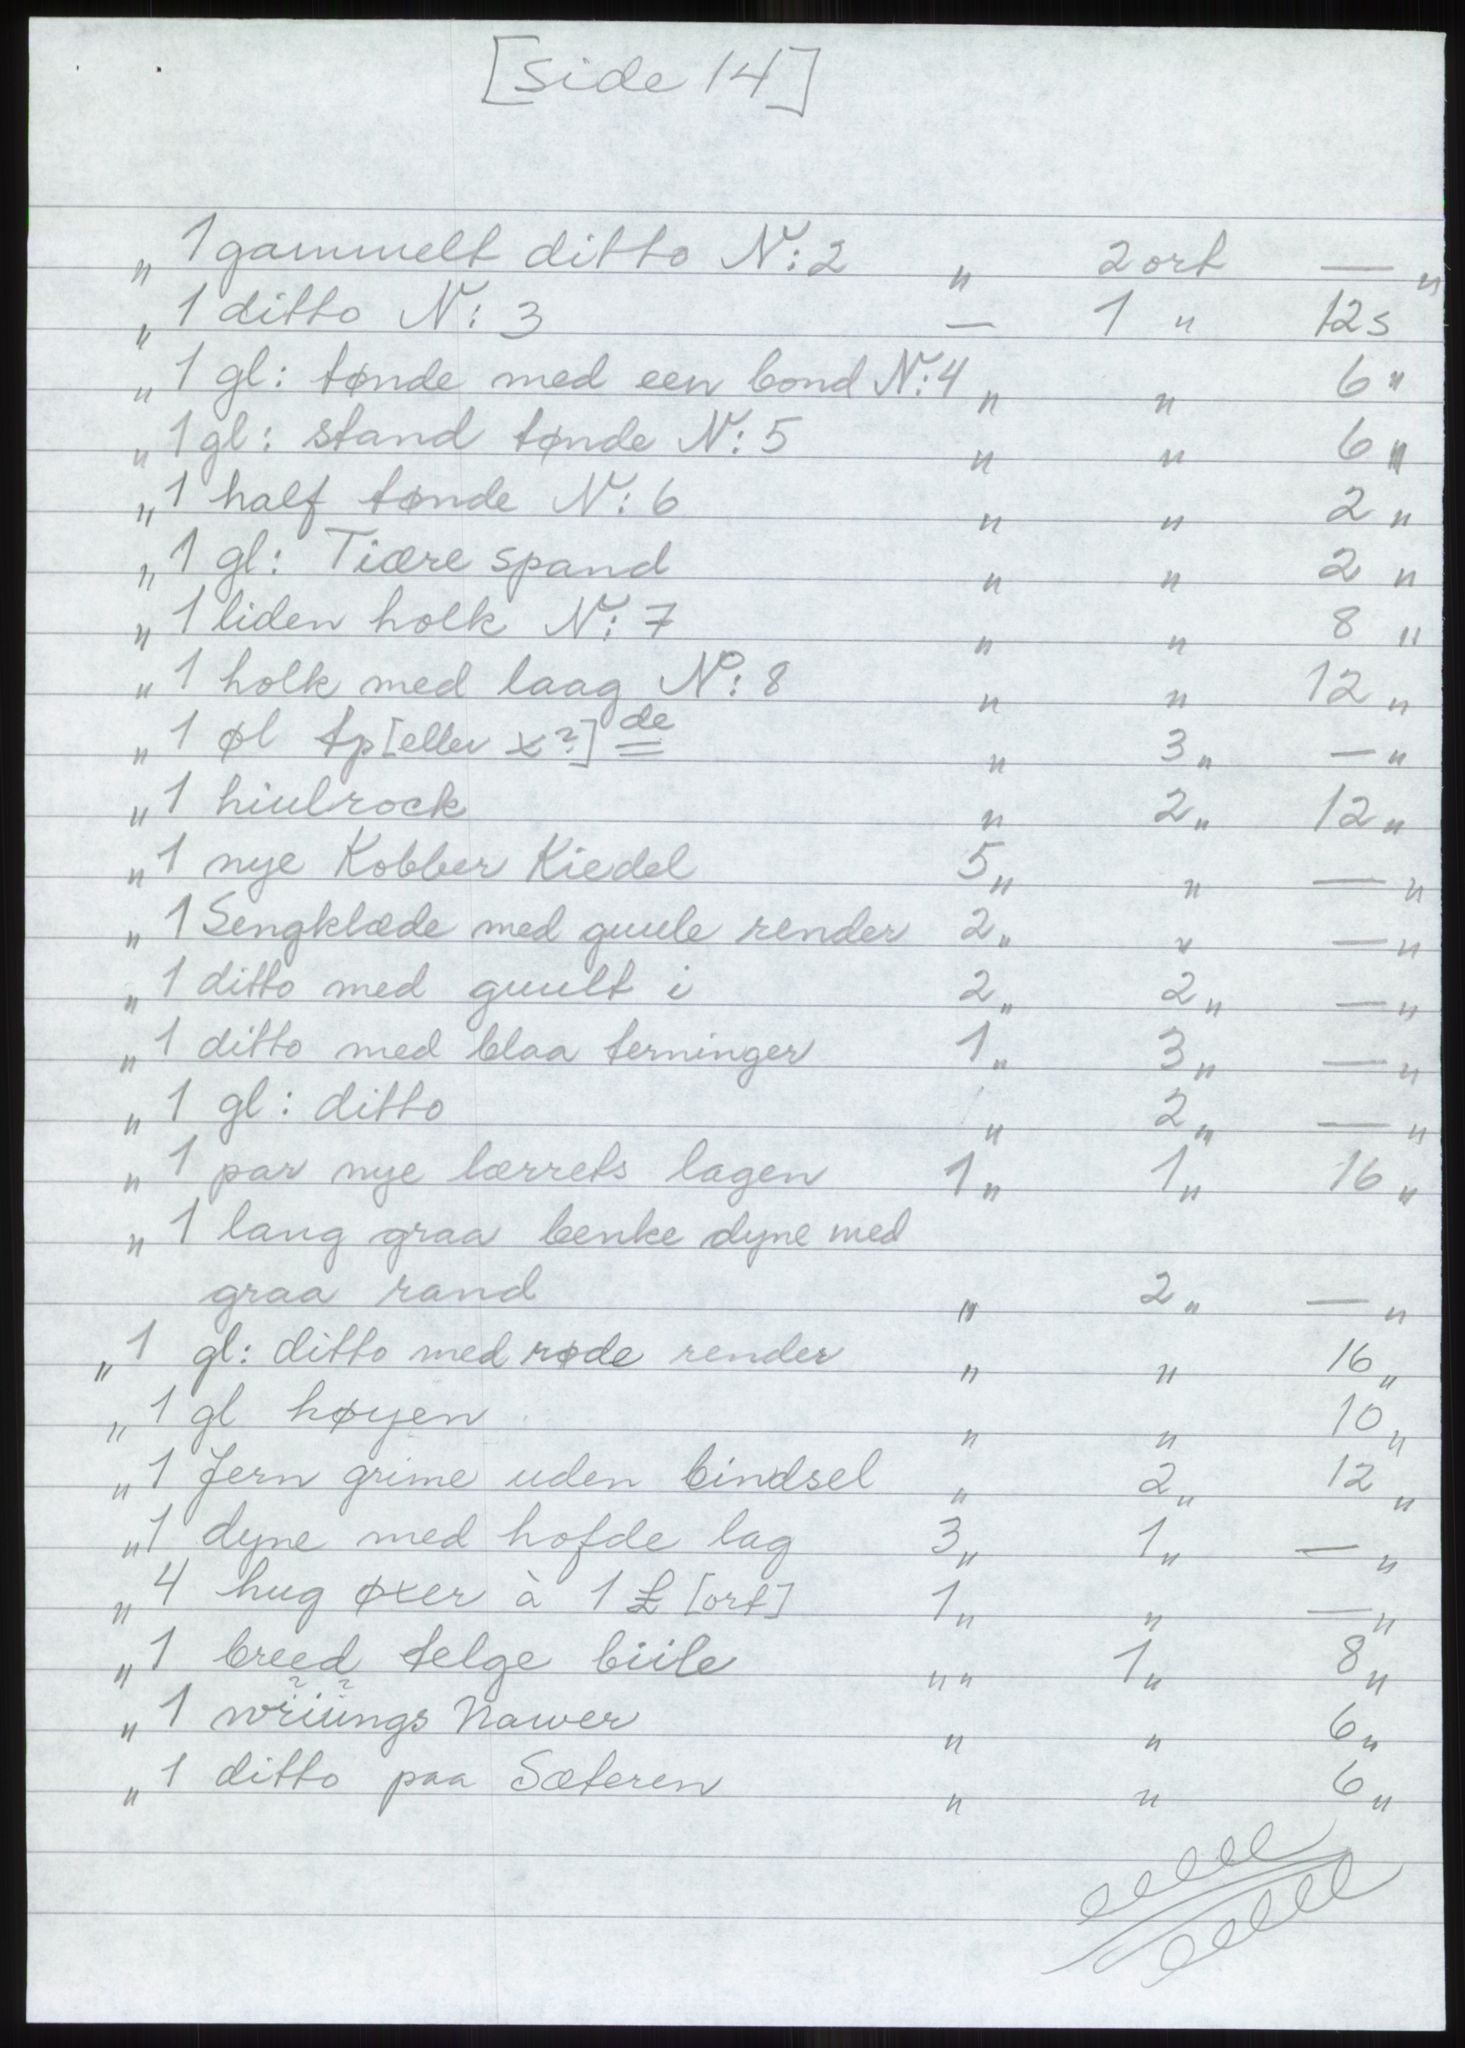 [Side 14]
" 1 gammelt ditto N: 2 " 2 ort — "
" 1 ditto N: 3 — 1 " 12 s
" 1 gl: tønde med een bond N: 4 " " 6 "
" 1 gl: stand tønde N: 5 " " 6 "
" 1 half tønde N: 6 " " 2 "
" 1 gl: Tiære spand " " 2 "
" 1 liden holk N: 7 " " 8 "
" 1 holk med laag No: 8 " " 12 "
" 1 øl tp [eller x?] de " 3 " — "
" 1 hiulrock " 2 " 12 "
" 1 nye Kobber Kiedel 5 " " — "
" 1 Sengklæde med guule render 2 " " — "
" 1 ditto med guult i 2 " 2 " — "
" 1 ditto med blaa terninger 1 " 3 " — "
" 1 gl: ditto " 2 " — "
" 1 par nye lærrets lagen 1 " 1 " 16 "
" 1 lang graa benke dyne med
graa rand " 2 " — "
" 1 gl: ditto med røde render " " 16 "
" 1 gl høyen " " 10 "
" 1 Jern grime uden bindsel " 2 " 12 "
" 1 dyne med hofde lag 3 " 1 " — "
" 4 hug øxer à 1 £ [ort] 1 " " — "
" 1 breed telge biile " " 1 " 8 "
" 1 wriüngs Nawer " " 6 "
" 1 ditto paa Sæteren " " 6 "